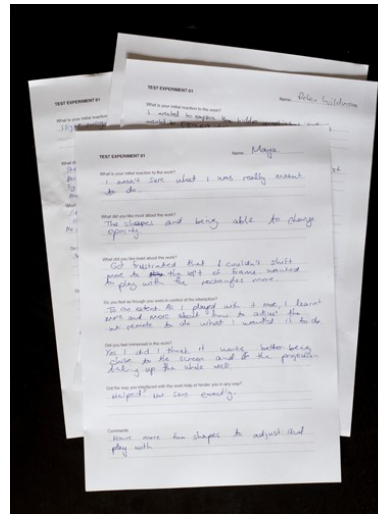 TEST EXPERIMENT 01
Name: Peter
What is your initial reaction to the work?
I wanted to explore the hidden
TEST EXPERIMENT 01
What is your initial reaction
TEST EXPERIMENT 01
Name: Maya
What is your initial reaction to the work?
I wasn't sure what I was really meant
to do.
What did you like most about the work?
The shapes and being able to change
opacity.
What did you like least about the work?
Got frustrated that I couldn't shift
more to the left of frame. wanted
to play with the rectangles more.
Do you feel as though you were in control of the interaction?
To an extent. As I played with it more, I learnt
more and more about how to adjust the
wii remote to do what I wanted it to do
Did you feel immersed in the work?
Yes I did I think it works better being
close to the screen and of the projection
taking up the whole wall.
Did the way you interfaced with the work help or hinder you in any way?
Helped? Not sure exactly.
Comments
Have more fun shapes to adjust and
play with